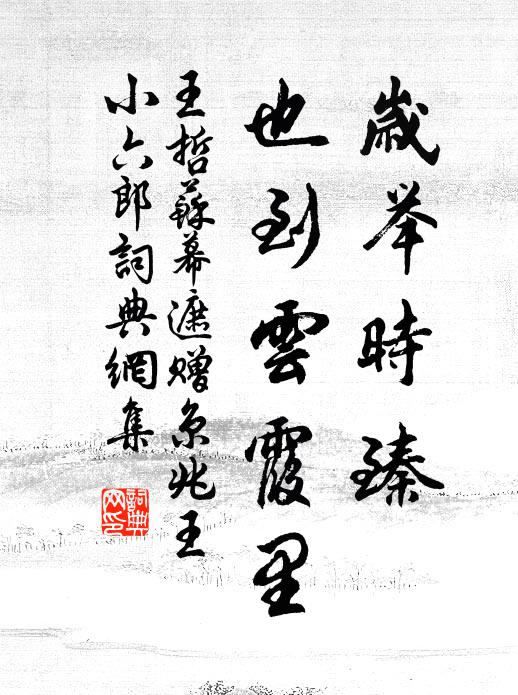 歲举時臻
也到雲霞里
王哲蘇幕遮赠京兆王
小六郎詞典網集
詞典网印